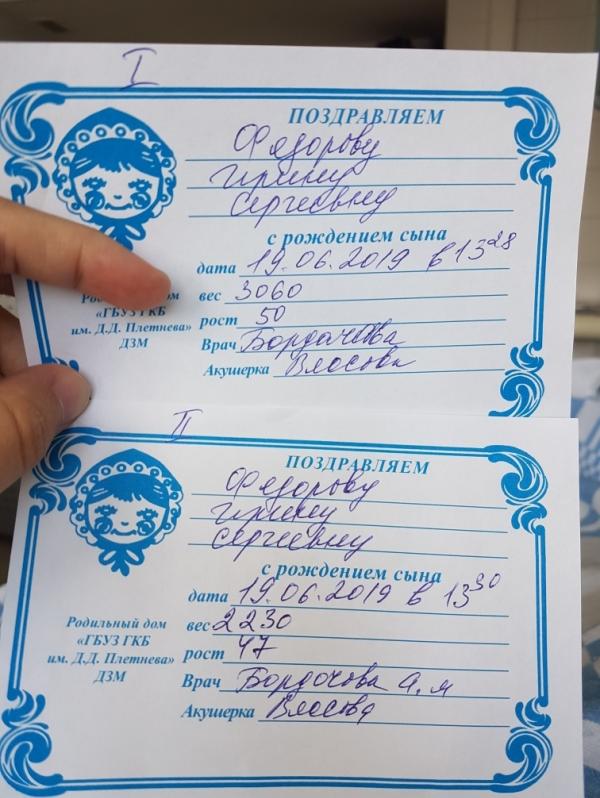 I
ПОЗДРАВЛЯЕМ
Фядорову
Ирину
Сергеевну
с рождением сына
дата 19.06.2019 в 13 28
Родильный дом
вес 3060
«ГБУЗ ГКБ
рост 50
им. Д.Д. Плетнева»
Врач Бордачова
ДЗМ
Акушерка Власова
II
ПОЗДРАВЛЯЕМ
Фядорову
Ирину
Сергеевну
с рождением сына
дата 19.06.2019 в 13 30
Родильный дом
вес 2230
«ГБУЗ ГКБ
рост 47
им. Д.Д. Плетнева»
Врач Бордочова А.М
ДЗМ
Акушерка Власова